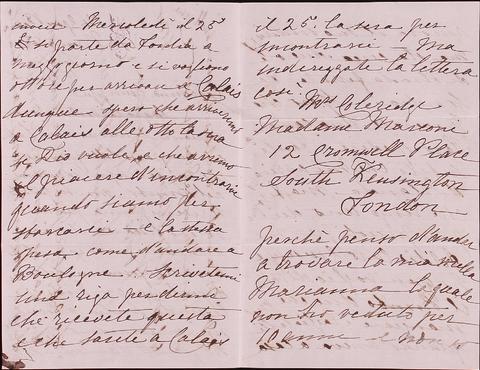 invece Mercoledi il 25º
si parte da Londra a
mezzogiorno e si vogliono
ottore per arrivare a Calais
dunque spero che arriveremo
a Calais alle otto la sera
se Dio vuole, e che avremo
il piacere d'incontrarvi
quando siamo per
sbarcarci - è la stessa
spesa come d'andare a
Boulogne. Scrivetemi
una riga per dirmi
che ricevete questa
e che sarete a Calais
il 25º. la sera per
incontrarci - Ma
indirizzate la lettera
così
Mrs Coleridge
Madame Marconi
12 Cromwell Place
South Kensington
London
perchè penso d'andar
a trovare la mia
Marianna la quale
non ho veduto per
10 anni e non so